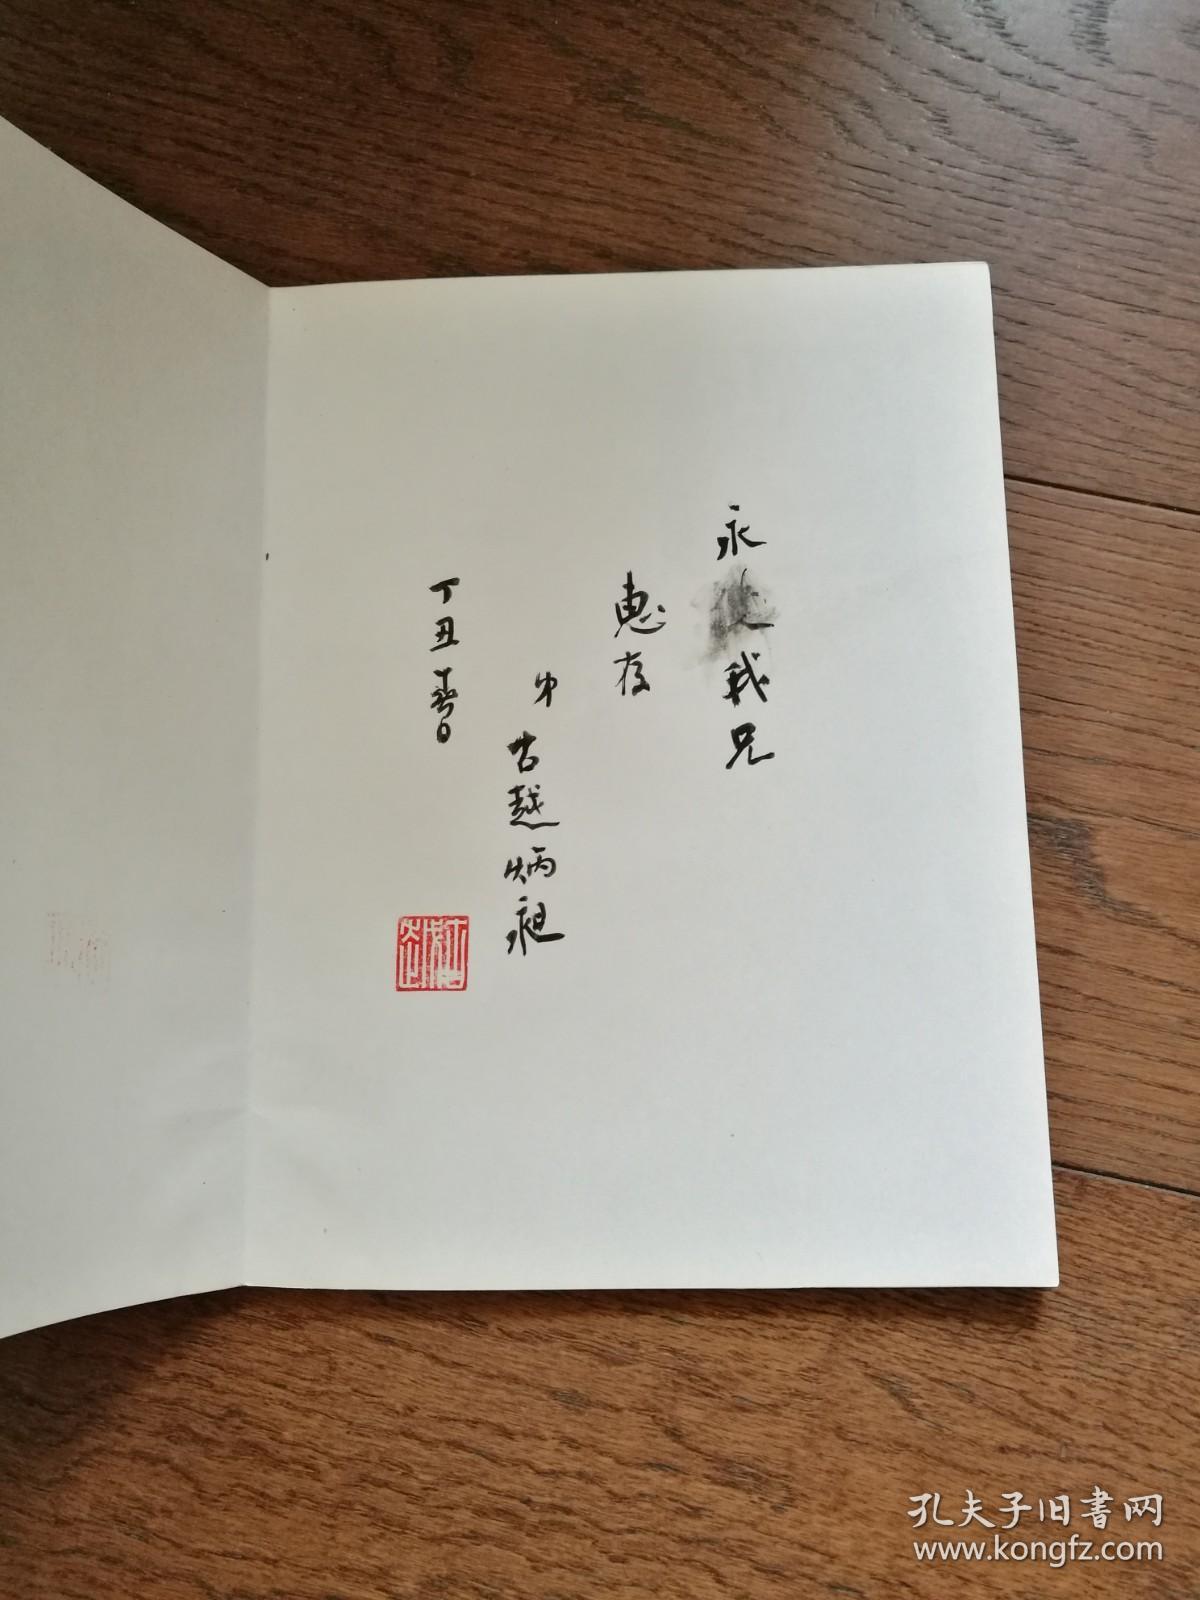 永 我兄
惠存
弟古越炳昶
丁丑春日
孔夫子旧书网
www.kongfz.com